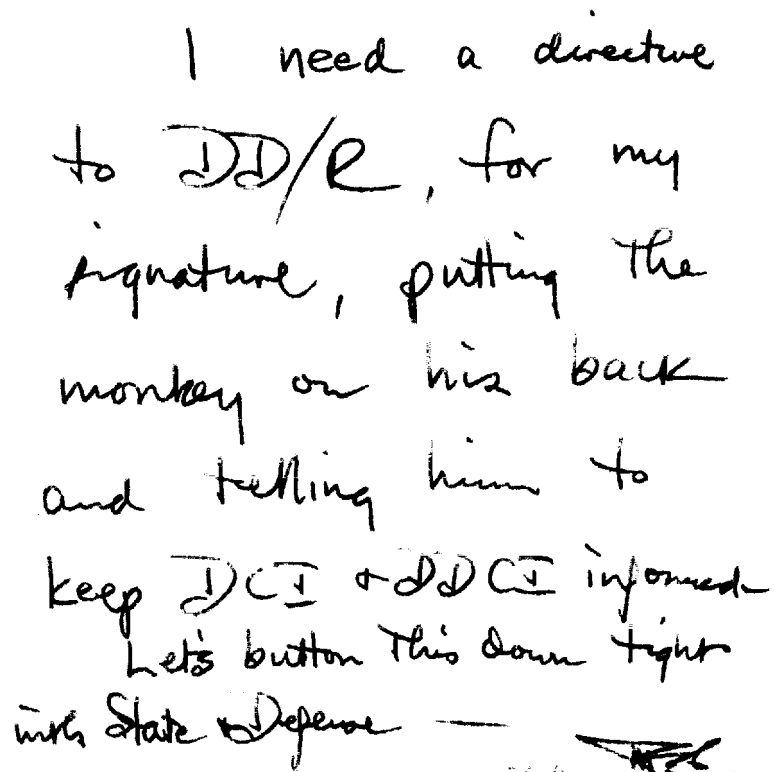 I need a directive
to DD/R, for my
signature, putting the
monkey on his back
and telling him to
keep DCI & DDCI informed
Let's button this down tight
with State & Defense —